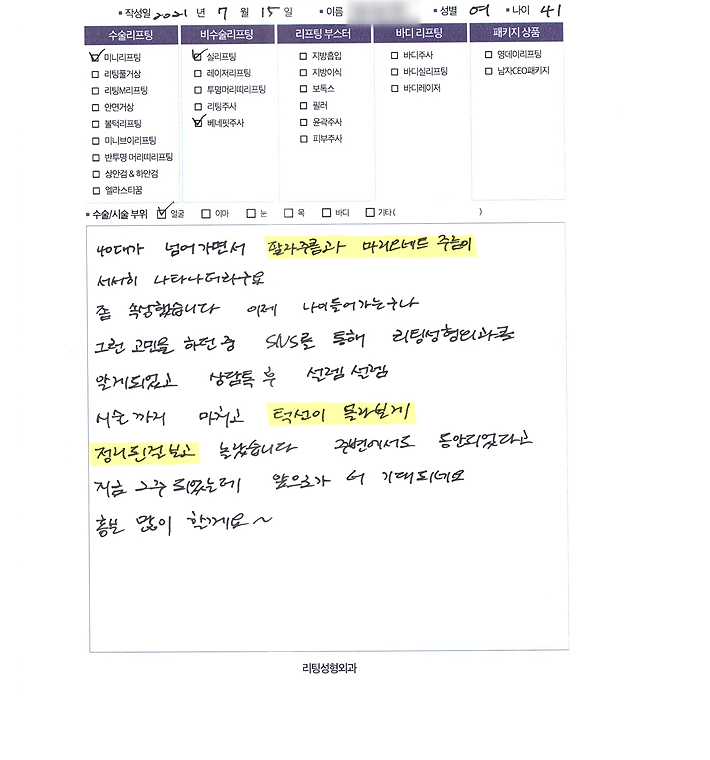 작성일 2021 년 7 월 15 일 이름 성별 여 나이 41
수술리프팅 비수술리프팅 리프팅 부스터 바디 리프팅 패키지 상품
미니리프팅 실리프팅 지방흡입 바디주사 영데이리프팅
리팅풀거상 레이저리프팅 지방이식 바디실리프팅 남자CEO패키지
리팅M리프팅 투명머리띠리프팅 보톡스 바디레이저
안면거상 리팅주사 필러
볼턱리프팅 베네핏주사 윤곽주사
미니브이리프팅 피부주사
반투명 머리띠리프팅
상안검 & 하안검
엘라스티꿈
수술/시술 부위 얼굴 이마 눈 목 바디 기타( )
40대가 넘어가면서 팔자주름과 마리오네트 주름이
서서히 나타나더라구요
좀 속상했습니다 이제 나이들어가는구나
그런 고민을 하던 중 SNS를 통해 리팅성형외과를
알게되었고 상담특 후 설렘 설렘
시술 까지 마치고 턱선이 몰라보게
정리된걸보고 놀랐습니다 주변에서도 동안되었다고
지금 2주 되었는데 앞으로가 더 기대되네요
홍보 많이 할게요~
리팅성형외과